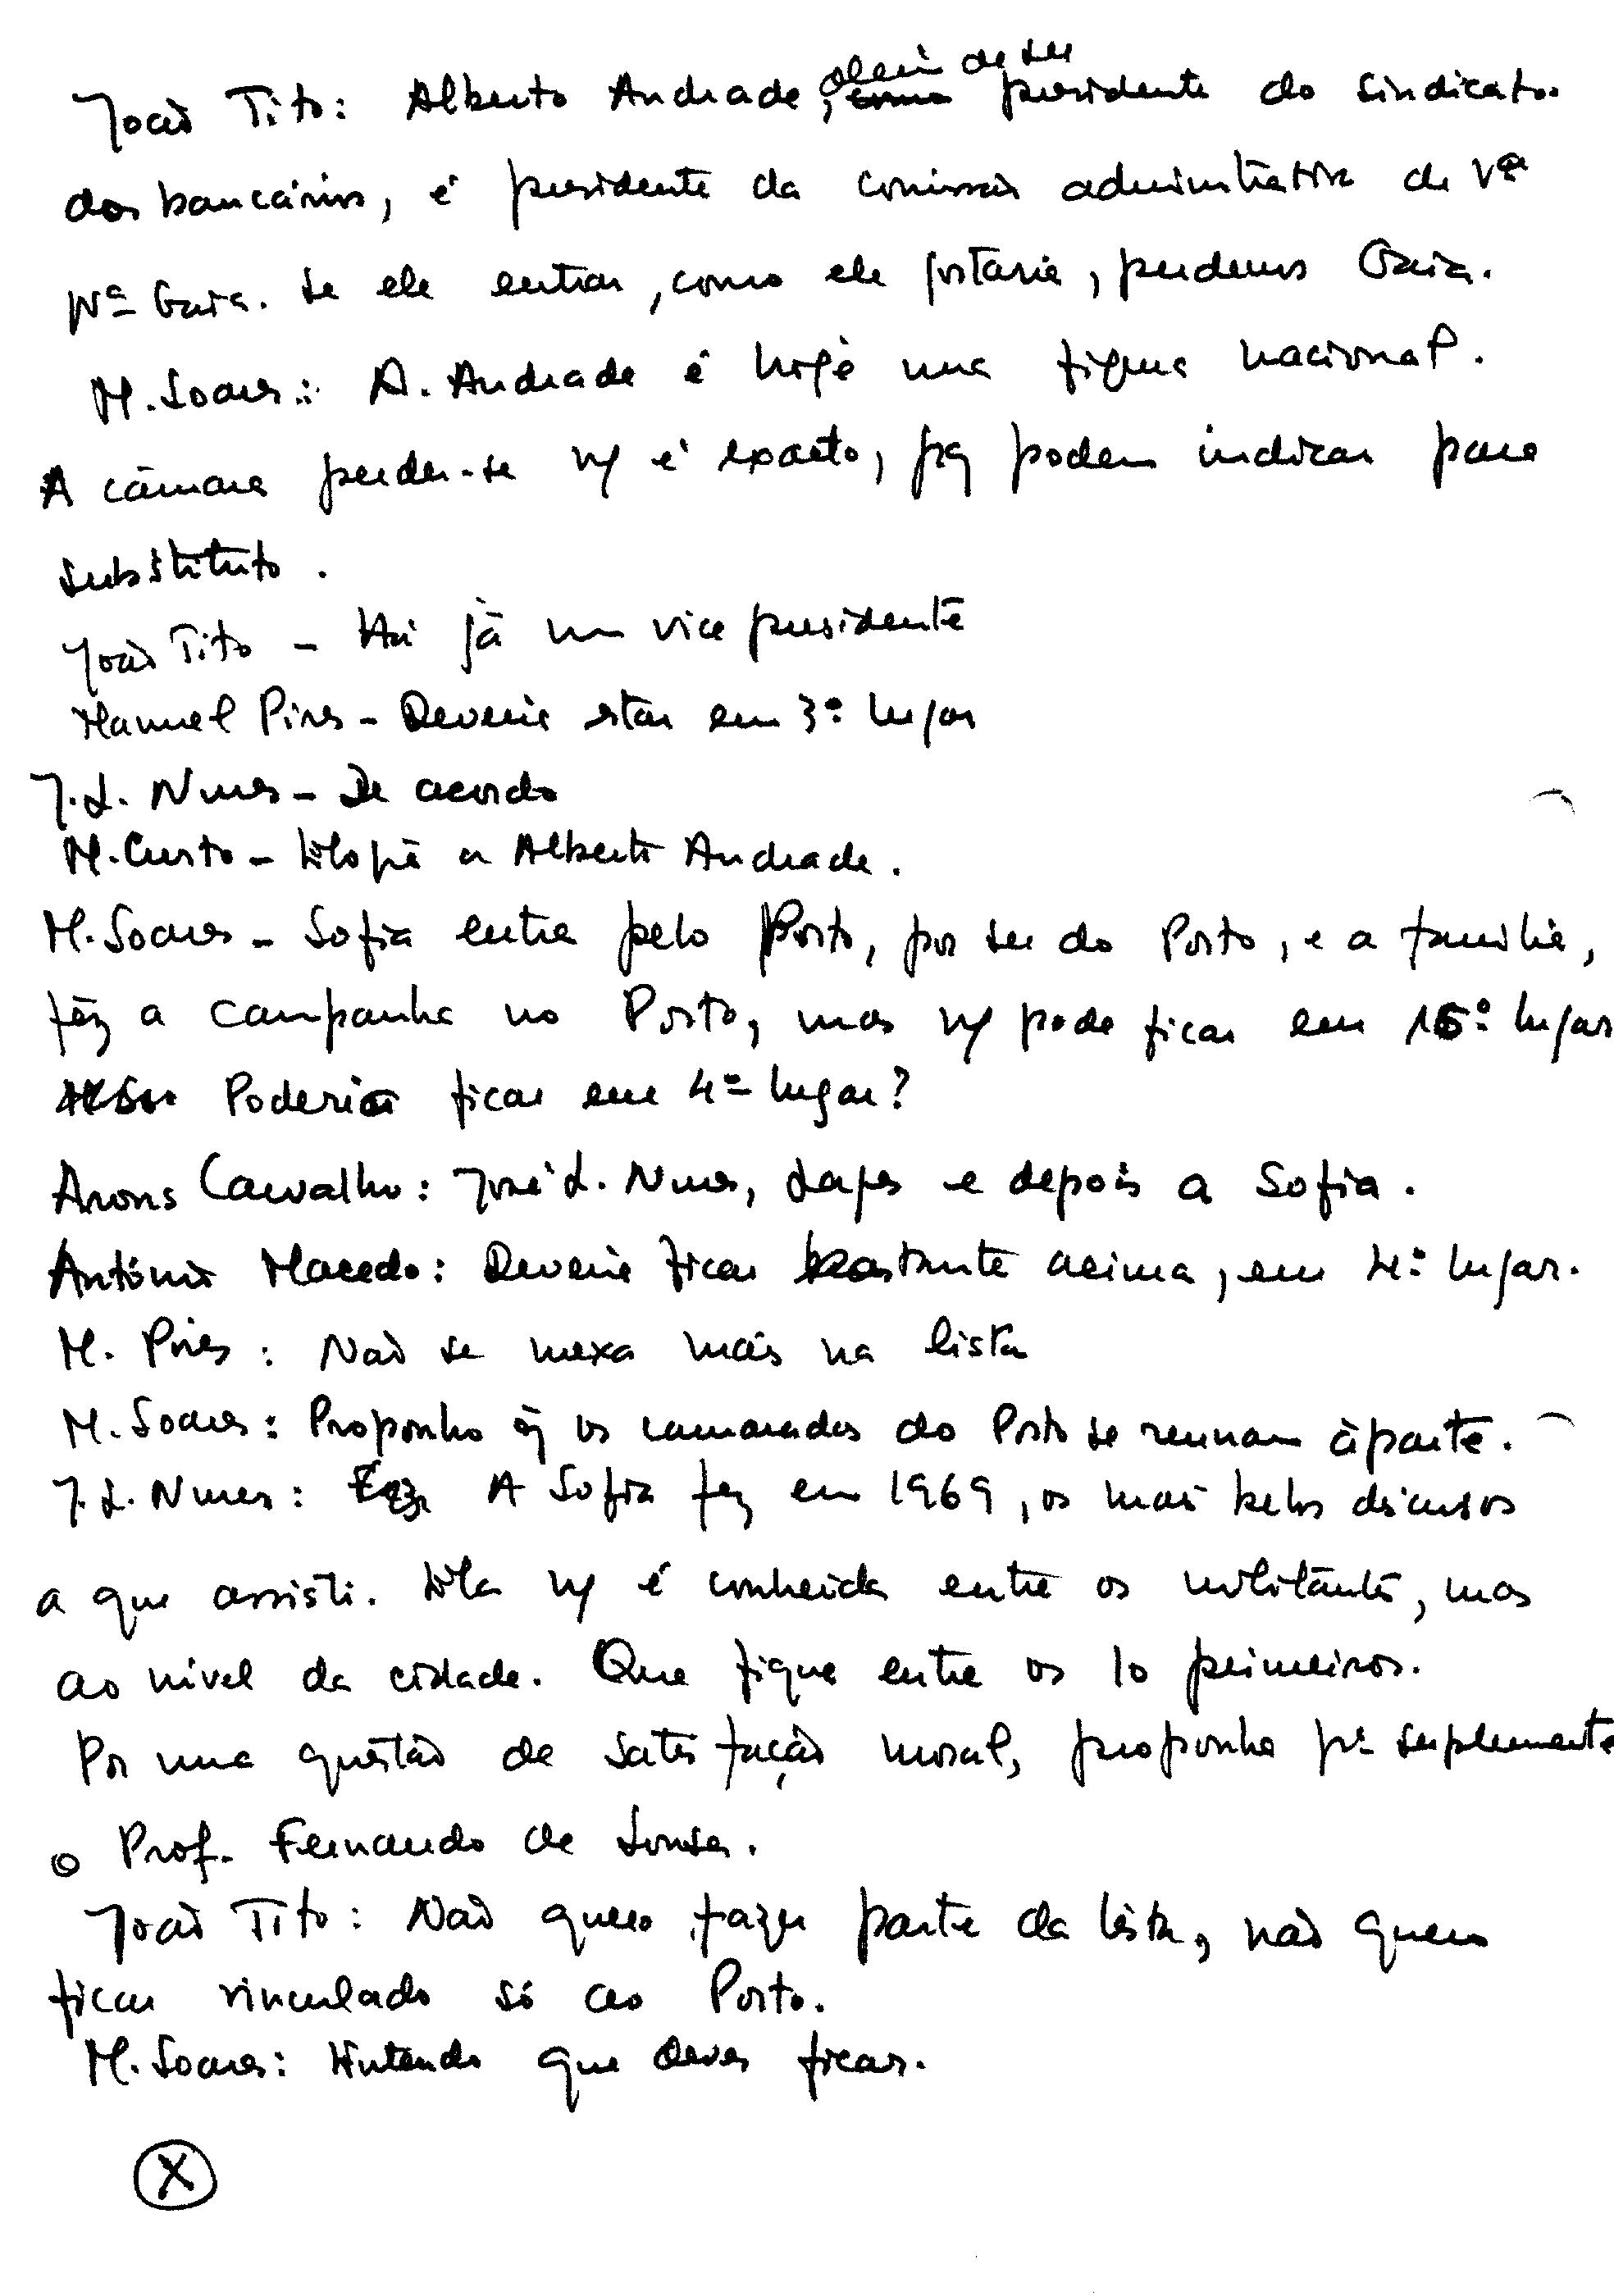 João Tito: Alberto Andrade, além de ser presidente do sindicato
dos bancários, é presidente da comissão administrativa de Vª
Nª Gaia. Se ele entrar, como ele gostaria, perdemos Gaia.
M. Soares: A. Andrade é hoje uma figura nacional.
A câmara perder-se ñ é exacto, pq podem indicar para
substituto.
João Tito - Há já um vice presidente
Manuel Pires - Deveria estar em 3º lugar
J. L. Nunes - De acordo
M. Custo - Elogia a Alberto Andrade.
M. Soares - Sofia entra pelo Porto, por ser do Porto, e a família,
fêz a campanha no Porto, mas ñ pode ficar em 15º lugar
Poderia ficar em 4º lugar?
Arons Carvalho: José L. Nunes, Lages e depois a Sofia.
António Macedo: Deveria ficar bastante acima, em 4º lugar.
M. Pires: Não se mexa mais na lista
M. Soares: Proponho q̃ os camaradas do Porto se reunam àparte.
J. L. Nunes: A Sofia fez em 1969, os mais belos discursos
a que assisti. Ela ñ é conhecida entre os militantes, mas
ao nível da cidade. Que fique entre os 10 primeiros.
Por uma questão de satisfação moral, proponho pª suplemente
o Prof. Fernando de Sousa.
João Tito: Não quero fazer parte da lista, não quero
ficar vinculado só ao Porto.
M. Soares: Entendo que deves ficar.
X